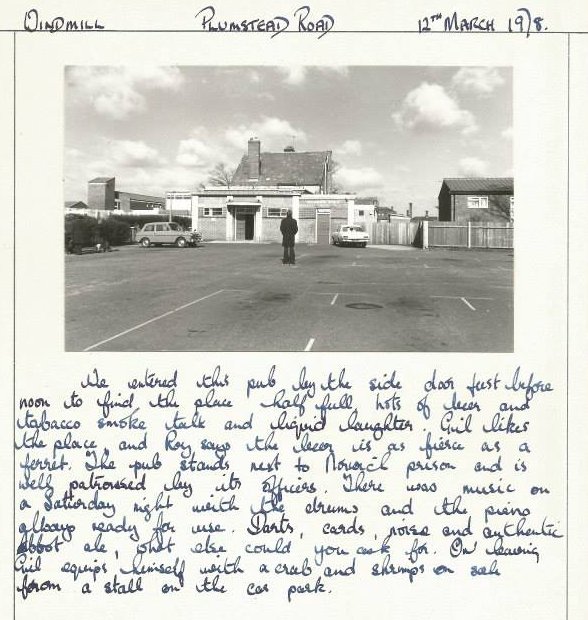 WINDMILL PLUMSTEAD ROAD 12TH MARCH 1978.
We entered this pub by the side door just before
noon to find the place half full lots of beer and
tabacco smoke talk and liquid laughter. Gil likes
the place, and Roy says the beer is as fierce as a
ferret. The pub stands next to Norwich prison and is
well patronised by its officers. There was music on
a Saturday night with the drums and the piano
always ready for use. Darts, cards, noise and authentic
Abbot ale, what else could you ask for. On leaving
Gil equips himself with a crab and shrimps on sale
from a stall on the car park.